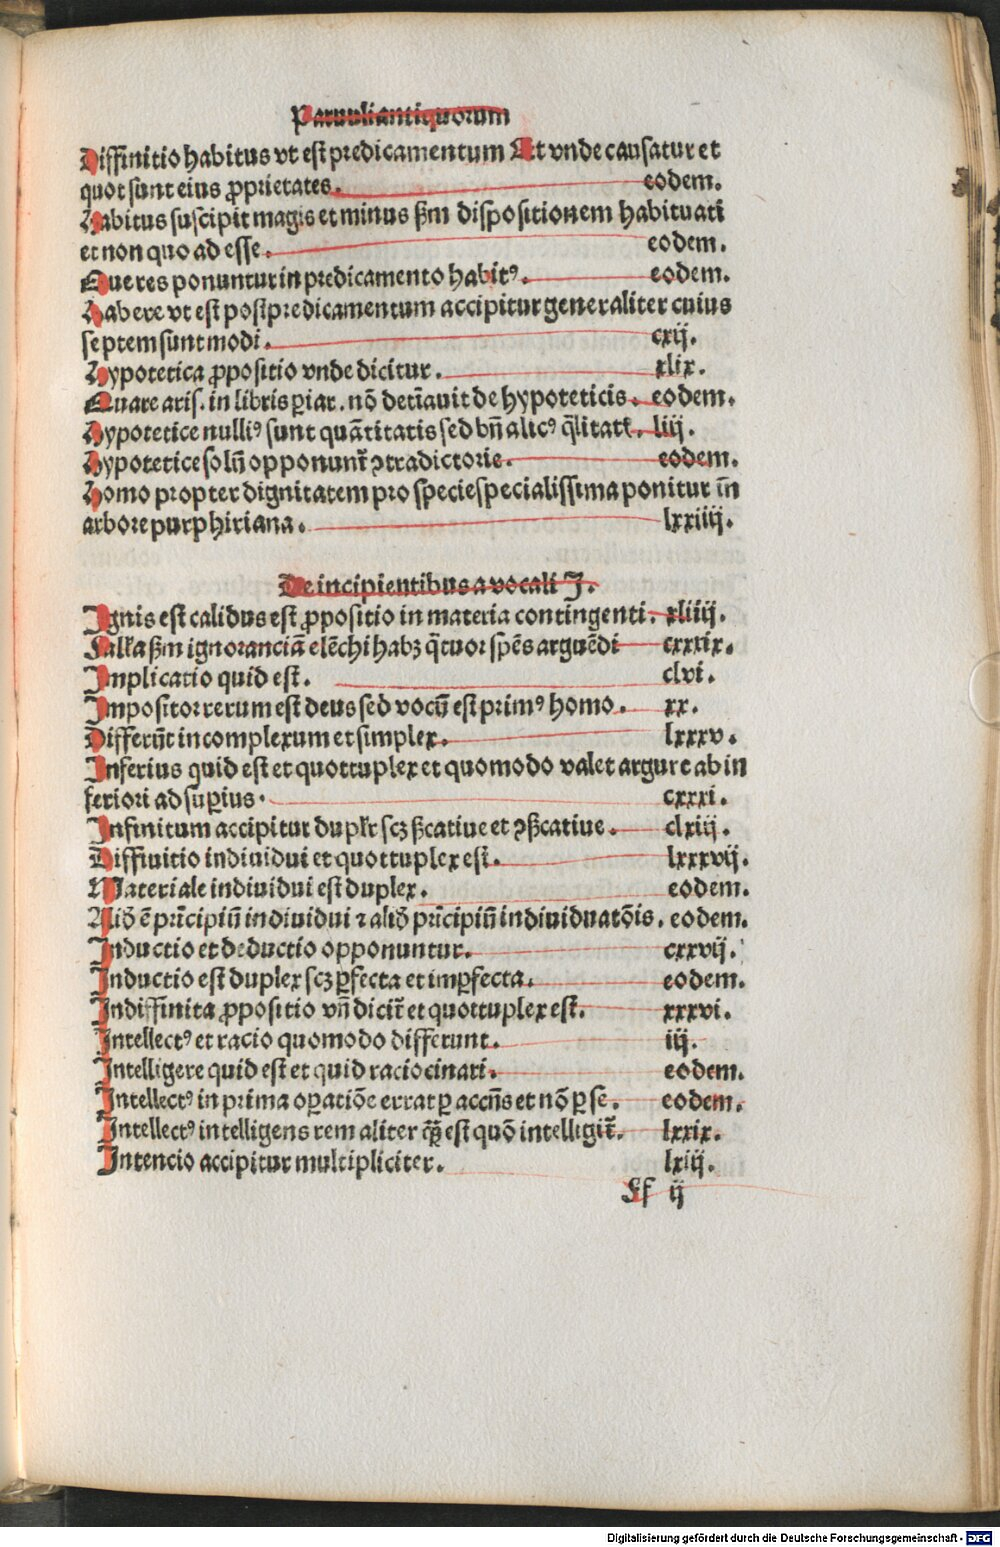 Paruuli antiquorum
Diffinitio habitus vt est predicamentum Et vnde causatur et
quot sunt eius ꝓprietates. eodem.
Habitus suscipit magis et minus ẜm dispositionem habituati
et non quo ad esse. eodem.
Que res ponuntur in predicamento habitꝰ. eodem.
Habere vt est postpredicamentum accipitur generaliter cuius
septem sunt modi. cxij.
Hypotetica ꝓpositio vnde dicitur. xlix.
Quare aris. in libris ꝑiar. nō determ̄auit de hypoteticis. eodem.
Hypotetice nulliꝰ sunt quātitatis sed bn̄ alicꝰ q̄litatꝭ. liij.
Hypotetice solū opponunt᷑ ꝯtradictorie. eodem.
Homo propter dignitatem pro specie specialissima ponitur in
arbore purphiriana. lxxiiij.
De incipientibus a vocali J.
Ignis est calidus est ꝓpositio in materia contingenti. xliiij.
ẜm ignoranciā elēchi habꝫ q̄tuor spēs arguēdi cxxxix.
Implicatio quid est. clvi.
Impositor rerum est deus sed vocū est primꝰ homo. xx.
Differūt incomplexum et simplex. lxxxv.
Inferius quid est et quottuplex et quomodo valet argure ab in
feriori ad suꝑius. cxxxi.
Infinitum accipitur duplr̄ scꝫ ẜcatiue et ꝯẜcatiue. clxiij.
Diffinitio indiuidui et quottuplex est. lxxxvij.
Materiale indiuidui est duplex. eodem.
Aliđ ē prīcipiū indiuidui ⁊ aliđ prīcipiū indiuiduatōis. eodem.
Inductio et deductio opponuntur. cxxvij.
Inductio est duplex scꝫ ꝑfecta et imꝑfecta. eodem.
Indiffinita ꝓpositio vn̄ dicit᷑ et quottuplex est. xxxvi.
Intellectꝰ et racio quomodo differunt. iij.
Intelligere quid est et quid raciocinari. eodem.
Intellectꝰ in prima oꝑatiōe errat ꝑ accn̄s et nō ꝑ se. eodem.
Intellectꝰ intelligens rem aliter ꝙ̄ est quō intelligit᷑. lxxix.
Intencio accipitur multipliciter. lxiij.
Ff ij
Digitalisierung gefördert durch die Deutsche Forschungsgemeinschaft - DFG